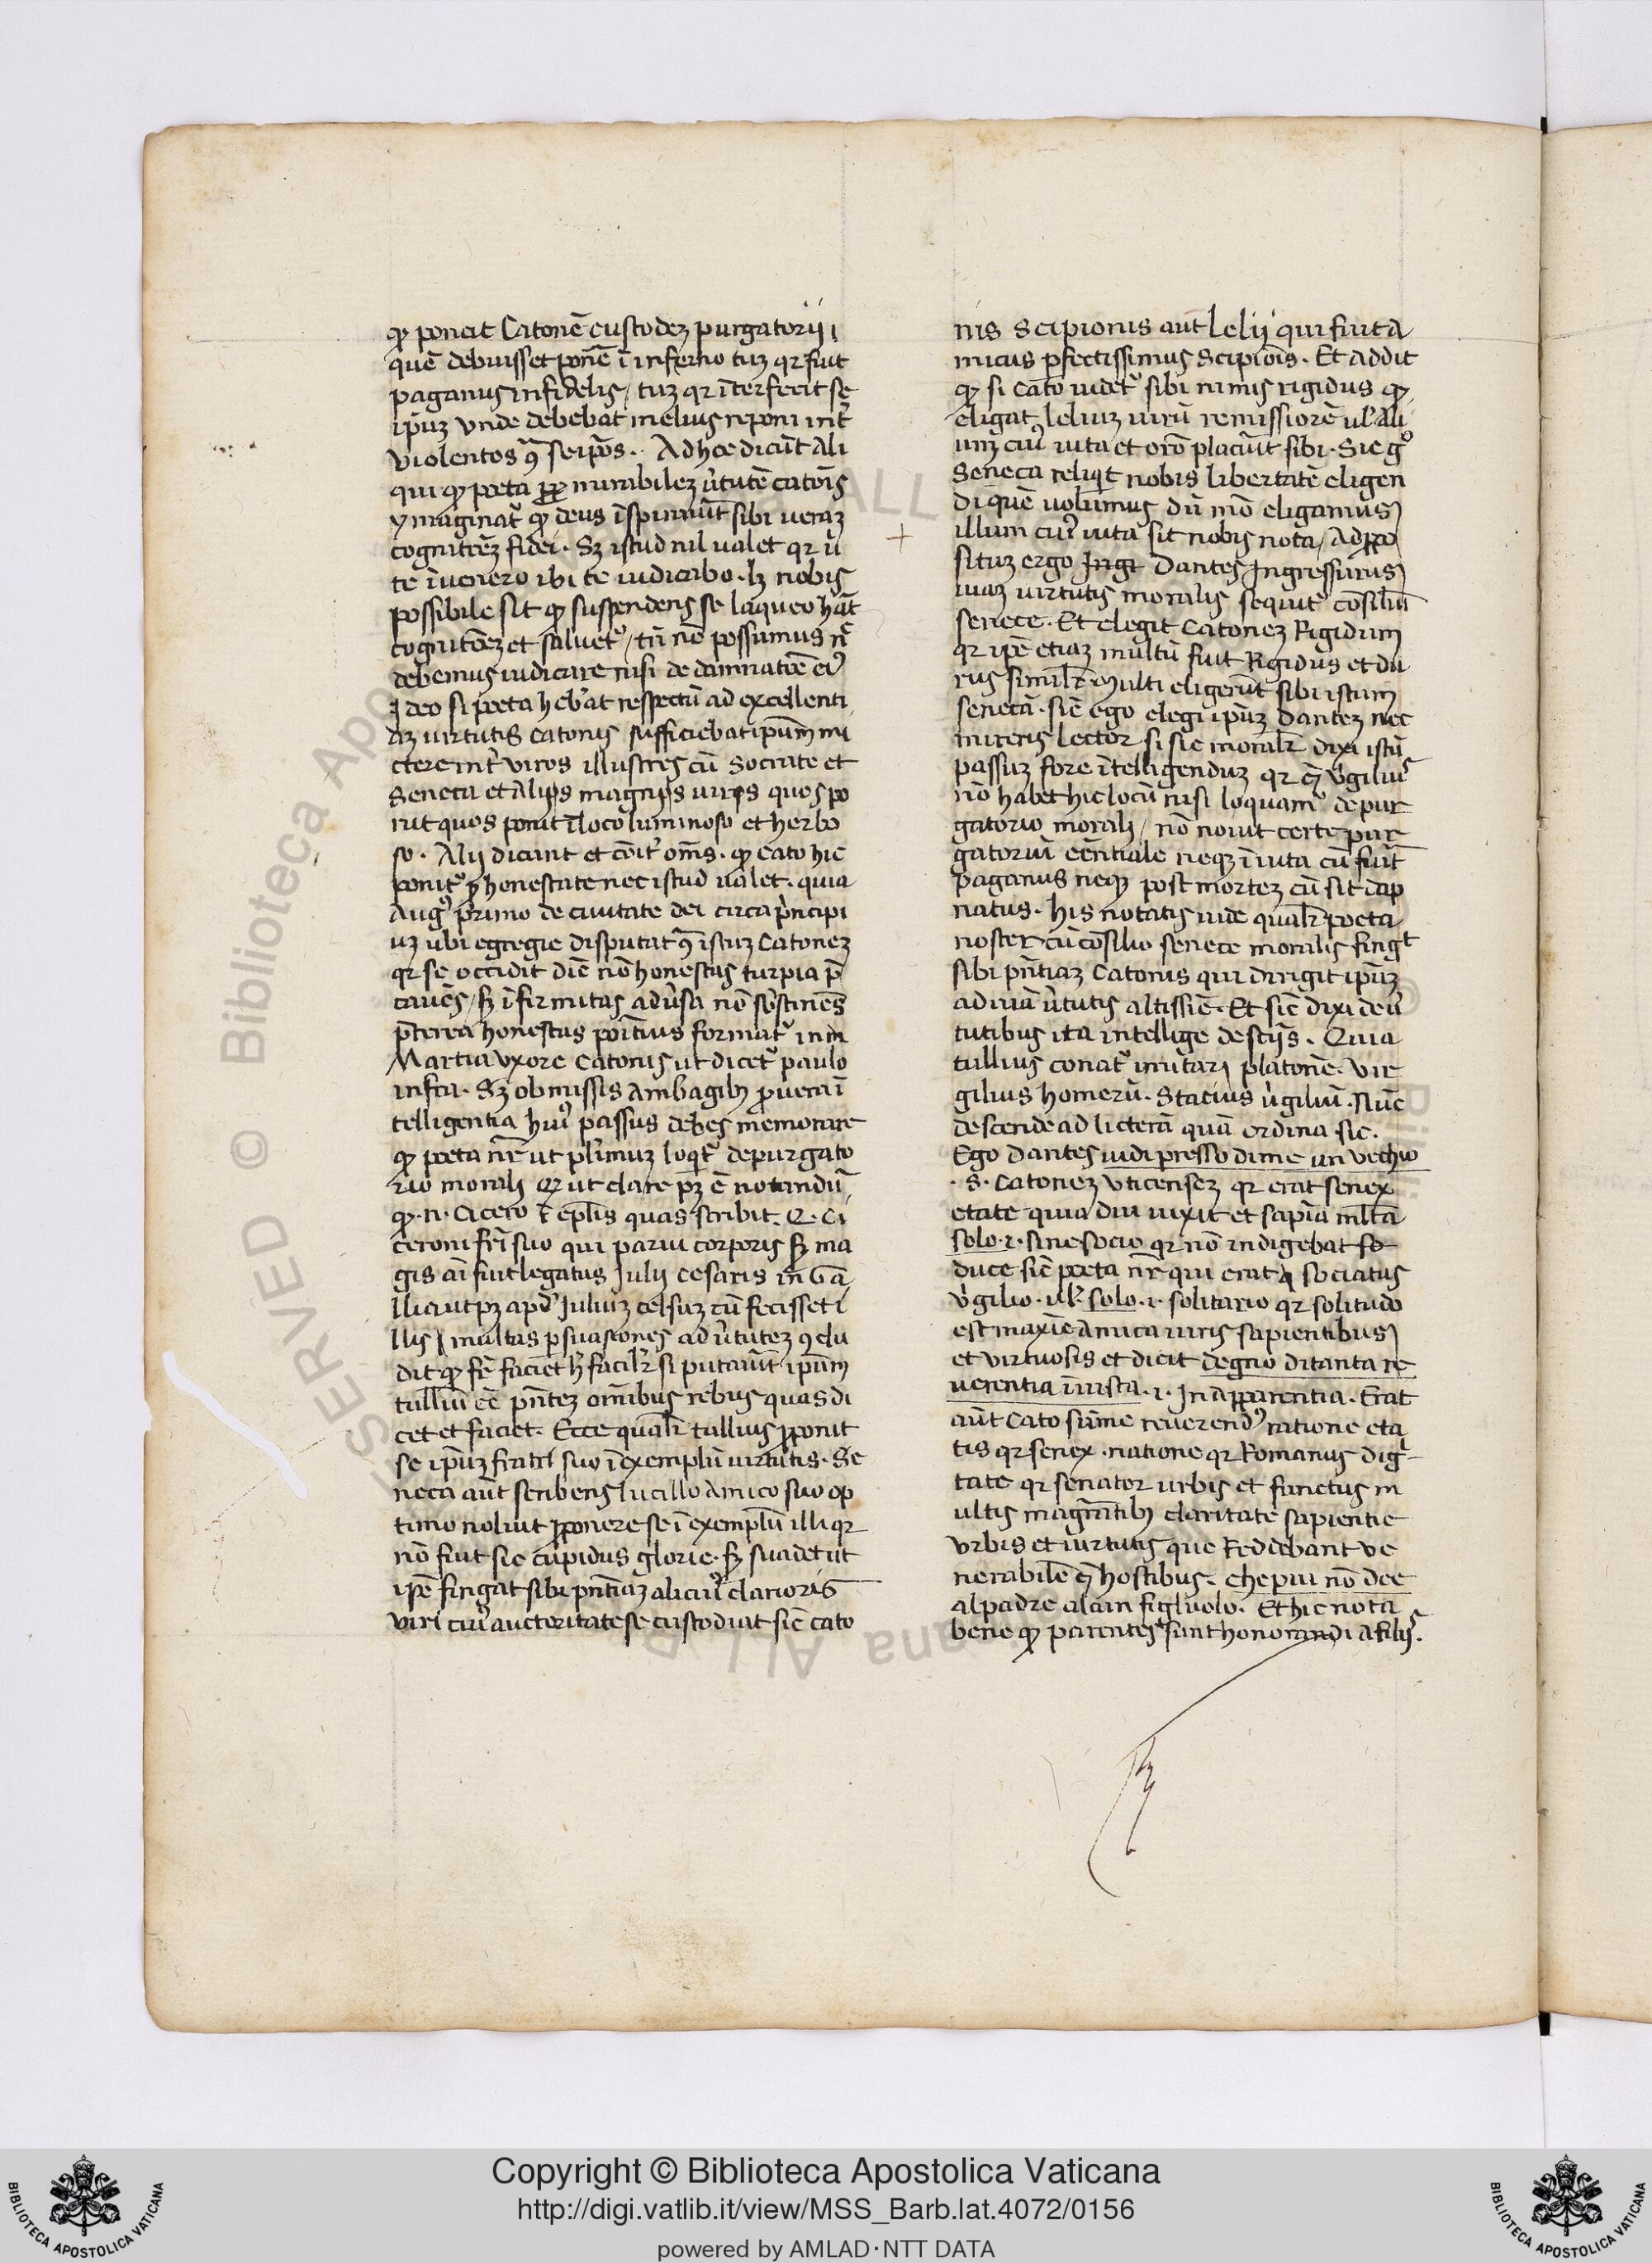 qꝫ ponat Catonē custodeꝫ purgatorij
quē debuisset ponē ī inferno tuꝫ qꝛ fuit
paganus infidelis / tuꝫ qꝛ īterfecit se
ip̄uꝫ vnde debebat melius reponi int̄
violentos ꝯ̄ seip̄os. Ad hoc dicūt ali
qui qꝫ poeta ꝓp̄ mirabileꝫ ūtutē catōis
ymaginat᷑ qꝫ deus īspirauūt sibi ueraꝫ
cognitōeꝫ fidei. Sꝫ istud nil ualet qꝛ u̇
te īuenero ibi te iudicabo. lꝫ nobis
possibile sit qꝫ suspendens se laqueo hāt
cognitōeꝫ et saluet᷑ / tn̄ nō possumus n̄
debemus iudicare nisi de damnatōe eiꝰ
Ideo si poeta heb̄at respectū ad excellenti
aꝫ uirtutis Catonis sufficiebat ipsum mi
ctere int̄ viros illustres cū Socrate et
Seneca et alijs magnis uiris quos po
nit quos ponit ī loco luminoso et herbo
so. Alij dicunt et cōit̄ om̄s. qꝫ Cato hic
ponit᷑ ꝓ honestate nec istud ualet. quia
Augꝰ primo de ciuitate dei circa p̄ncipi
uꝫ ubi egregie disputat ꝯ̄ istuꝫ Catoneꝫ
qꝛ se occidit dicē nō honestas turpia p̄
cauēs / sꝫ īfirmitas adūsa nō sustinēs
p̄terea honestas poītius format᷑ in m
Martia vxore Catonis ut dicet᷑ paulo
infra. Sꝫ obmissis ambagibꝫ ꝓ uera ī
telligentia huiꝰ passus debes memorare
qꝫ poeta nr̄ ut pl̄imuꝫ loqt᷑ de purgato
rio morali Qꝛ ut clare pꝫ ē notandū
qꝫ .n. Cicero ī ep̄lis quas scribit. Q. Ci
ceroni fr̄i suo qui parui corporis sꝫ ma
gis aī fuit legatus Iulij cesaris in Ga
llia ut pꝫ apd̄ Juliuꝫ celsuꝫ cū fecisset i
llis multas ꝑsuasiones ad ūtuteꝫ ꝯclu
dit qꝫ fr̄ faciet h̄ facilr̄ si putauūt ipsum
tulliū eē pn̄teꝫ omībus rebus quas di
cet et faciet. Ecce qualr̄ tullius ꝓponit
se ip̄uꝫ fratri suo ī exemplū uirtutis. Se
neca aūt scribens lucillo amico suo op
timo noluit ꝓponere se ī exemplū illi qꝛ
nō fuit sic cupidus glorie. sꝫ suadet ut
ip̄e fingat sibi pn̄tiaꝫ alicuiꝰ clarioris
viri cuiꝰ auctoritate se custodiat sic̄ cato
nis Scipionis aut Lelij qui fuit a
micus ꝑfectissimus Scipiōis. Et addit
qꝫ si Cato uidet᷑ sibi nimis rigidus qꝫ
eligat leliuꝫ uirū remissiorē ul̄ ali
um cuiꝰ uita et orō placuīt sibi. Sic gͦ
Seneca reliqt nobis libertatē eligen
di quē uolumus dū mō eligamus
illum cuiꝰ uita sit nobis nota / ad ꝓpo
situꝫ ergo Ingr Dantes Ingressurus
uiaꝫ uirtutis moralis sequit᷑ cōsiliū
senece. Et elegit Catoneꝫ Rigidum
qꝛ ip̄e etiaꝫ multū fuit Rigidus et du
rus similr̄ multi eligerūt sibi istum
senecā. sic̄ ego elegi ip̄uꝫ Danteꝫ nec
mireris lector si sic moralr̄ dixi istū
passuꝫ fore ītelligenduꝫ qꝛ ꝙ Vgilius
nō habet hic locū nisi loquamͬ de pur
gatorio morali / nō nouit certe pur
gatoriū eēntiale neqꝫ ī uita cū fuīt
paganus neqꝫ post morteꝫ cū sit dap
natus. his notatis uide qualr̄ poeta
noster cū cōsilio senece moralis fingt
sibi pn̄tiaꝫ Catonis qui dirigit ip̄uꝫ
ad uiā ūtutis altissīe. Et sic̄ dixi de ū
tutibus ita intellige de sciīs. Quia
tullius conat᷑ imitari platonē. Vir
gilius homerū. Statius ūgiliū. Nūc
descende ad licterā quā ordina sic.
Ego Dantes uidi presso di me un vechio
.S. Catoneꝫ vticenseꝫ qꝛ erat senex
etate quia diu uixit et sapīa ml̄ta
solo .i. sine socio qꝛ nō indigebat so
duce sic̄ poeta nr̄ qui erat q sociatus
Vgilio. ul̄ solo .i. solitario qꝛ solitudo
est maxīe amica uiris sapientibus
et virtuosis et dicit degno di tanta re
uerentia in uista .i. In apparentia. Erat
aūt Cato sūme reuerendꝰ ratione eta
tis qꝛ senex. natione qꝛ Romanus diḡ
tate qꝛ senator urbis et functus m
ultis magrātibꝫ claritate sapientie
vrbis et uirtutis que Reddebant ve
nerabilē ꝙ hostibus. che piu nō dee
al padre alcun figliuolo. Et hic nota
bene qꝫ parentes sunt honorandi a filijs.
Copyright © Biblioteca Apostolica Vaticana
http://digi.vatlib.it/view/MSS_Barb.lat.4072/0156
powered by AMLAD·NTT DATA